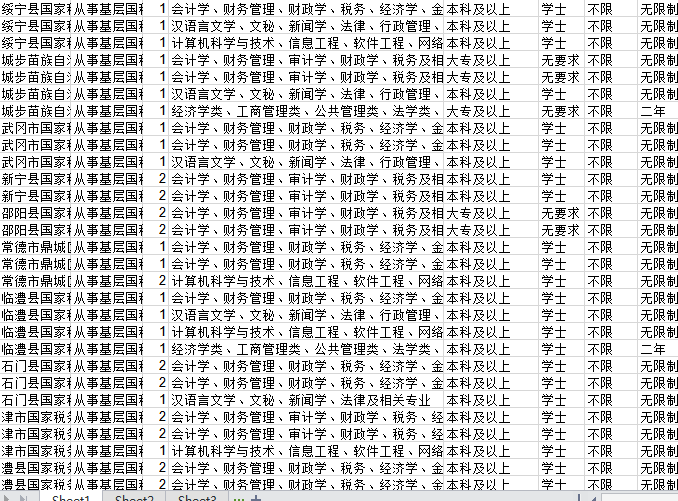 绥宁县国家税 从事基层国税 1 会计学、财务管理、财政学、税务、经济学、金 本科及以上 学士 不限 无限制
绥宁县国家税 从事基层国税 1 汉语言文学、文秘、新闻学、法律、行政管理、 本科及以上 学士 不限 无限制
绥宁县国家税 从事基层国税 1 计算机科学与技术、信息工程、软件工程、网络 本科及以上 学士 不限 无限制
城步苗族自治 从事基层国税 1 会计学、财务管理、审计学、财政学、税务及相 大专及以上 无要求 不限 无限制
城步苗族自治 从事基层国税 1 会计学、财务管理、审计学、财政学、税务及相 大专及以上 无要求 不限 无限制
城步苗族自治 从事基层国税 1 汉语言文学、文秘、新闻学、法律、行政管理、 本科及以上 学士 不限 无限制
城步苗族自治 从事基层国税 1 经济学类、工商管理类、公共管理类、法学类、 大专及以上 无要求 不限 二年
武冈市国家税 从事基层国税 1 会计学、财务管理、财政学、税务、经济学、金 本科及以上 学士 不限 无限制
武冈市国家税 从事基层国税 1 会计学、财务管理、财政学、税务、经济学、金 本科及以上 学士 不限 无限制
武冈市国家税 从事基层国税 1 汉语言文学、文秘、新闻学、法律、行政管理、 本科及以上 学士 不限 无限制
新宁县国家税 从事基层国税 2 会计学、财务管理、审计学、财政学、税务及相 本科及以上 学士 不限 无限制
新宁县国家税 从事基层国税 2 会计学、财务管理、审计学、财政学、税务及相 本科及以上 学士 不限 无限制
邵阳县国家税 从事基层国税 2 会计学、财务管理、审计学、财政学、税务及相 大专及以上 无要求 不限 无限制
邵阳县国家税 从事基层国税 2 会计学、财务管理、审计学、财政学、税务及相 大专及以上 无要求 不限 无限制
常德市鼎城区 从事基层国税 1 会计学、财务管理、财政学、税务、经济学、金 本科及以上 学士 不限 无限制
常德市鼎城区 从事基层国税 1 会计学、财务管理、财政学、税务、经济学、金 本科及以上 学士 不限 无限制
常德市鼎城区 从事基层国税 2 计算机科学与技术、信息工程、软件工程、网络 本科及以上 学士 不限 无限制
临澧县国家税 从事基层国税 1 会计学、财务管理、财政学、税务、经济学、金 本科及以上 学士 不限 无限制
临澧县国家税 从事基层国税 1 汉语言文学、文秘、新闻学、法律、行政管理、 本科及以上 学士 不限 无限制
临澧县国家税 从事基层国税 1 计算机科学与技术、信息工程、软件工程、网络 本科及以上 学士 不限 无限制
临澧县国家税 从事基层国税 1 经济学类、工商管理类、公共管理类、法学类、 本科及以上 学士 不限 二年
石门县国家税 从事基层国税 2 会计学、财务管理、财政学、税务、经济学、金 本科及以上 学士 不限 无限制
石门县国家税 从事基层国税 2 会计学、财务管理、财政学、税务、经济学、金 本科及以上 学士 不限 无限制
石门县国家税 从事基层国税 1 汉语言文学、文秘、新闻学、法律及相关专业 本科及以上 学士 不限 无限制
津市国家税务 从事基层国税 2 会计学、财务管理、审计学、财政学、税务、经 本科及以上 学士 不限 无限制
津市国家税务 从事基层国税 2 会计学、财务管理、审计学、财政学、税务、经 本科及以上 学士 不限 无限制
津市国家税务 从事基层国税 1 计算机科学与技术、信息工程、软件工程、网络 本科及以上 学士 不限 无限制
澧县国家税务 从事基层国税 2 会计学、财务管理、财政学、税务、经济学、金 本科及以上 学士 不限 无限制
澧县国家税务 从事基层国税 2 会计学、财务管理、财政学、税务、经济学、金 本科及以上 学士 不限 无限制
Sheet1 Sheet2 Sheet3 ... +